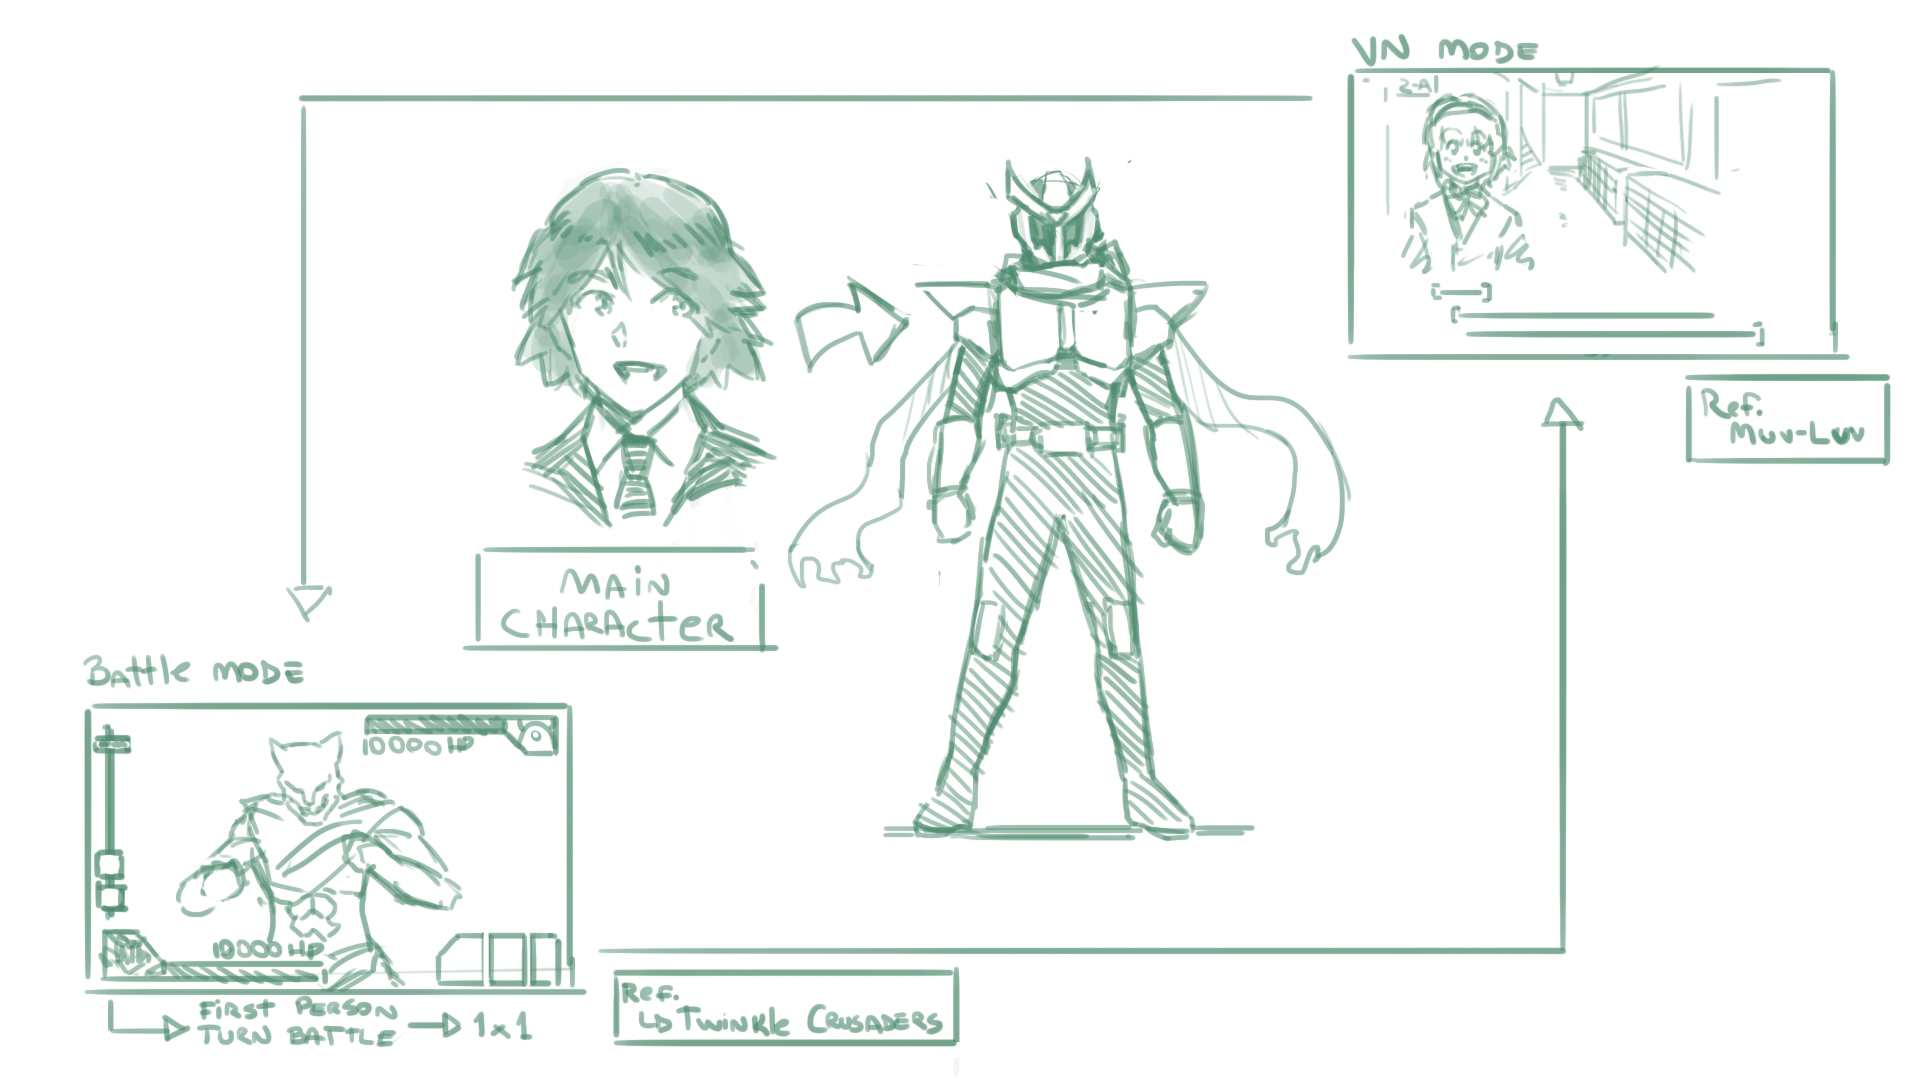 VN MODE
2-A
Ref.
Muv-Luv
MAIN
CHARACTER
Battle MODE
10000 HP
10000 HP
FIRST PERSON
TURN BATTLE
1x1
Ref.
TWINKLE CRUSADERS